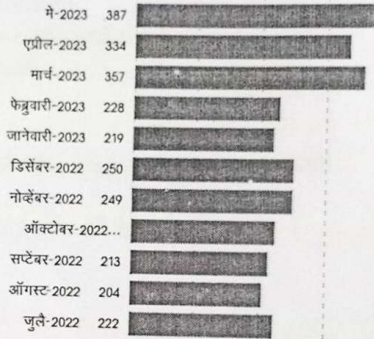 मे-2023 387
एप्रील-2023 334
मार्च-2023 357
फेब्रुवारी-2023 228
जानेवारी-2023 219
डिसेंबर-2022 250
नोव्हेंबर-2022 249
ऑक्टोबर-2022...
सप्टेंबर-2022 213
ऑगस्ट-2022 204
जुलै-2022 222